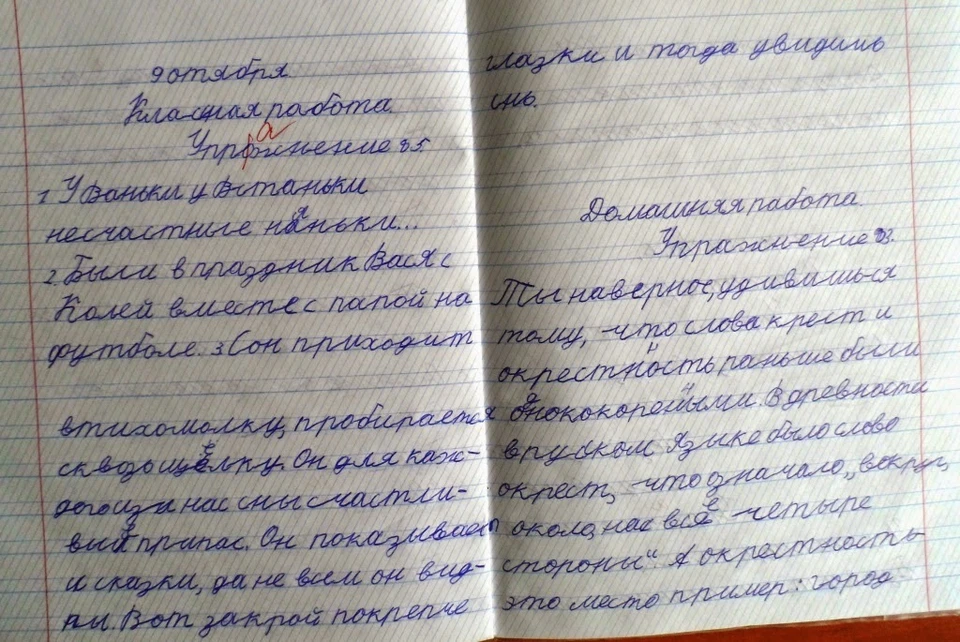 9 отября
Класная работа.
Упражнение 85.
1 У Ваньки у Встаньки
несчастные няньки...
2 Были в праздник Вася с
Колей вместе с папой на
футболе. 3 Сон приходит
втихомолку, пробирается
сквозь щёлку. Он для каж-
дого из нас сны счастли-
вый припас. Он показывает
и сказки, да не всем он вид-
ны. Вот закрой покрепче
глазки и тогда увидишь
сны.
Домашняя работа
Упражнение 83.
Ты наверное, удивишься
тому, что слова крест и
окрестность раньше были
однококореными. В древности
в руском языке было слово
окрест, что означало „вокруг,
около, на все четыре
стороны“. А окрестность
это место пример: город